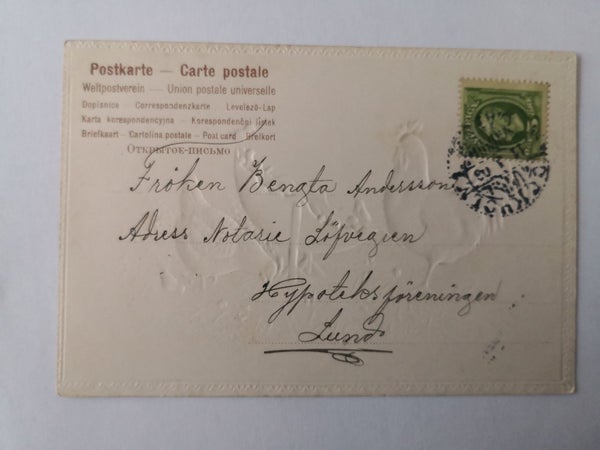 Postkarte — Carte postale
Weltpostverein — Union postale universelle
Dopisnice - Correspondenzkarte - Levelező-Lap
Karta korespondencyjna - Korespondenčgi listek
Briefkaart - Cartolina postale - Post card - Brefkort
Открытое-письмо
Fröken Bengta Andersson
Adress Notarie Löfvegren
Hypoteksföreningen
Lund